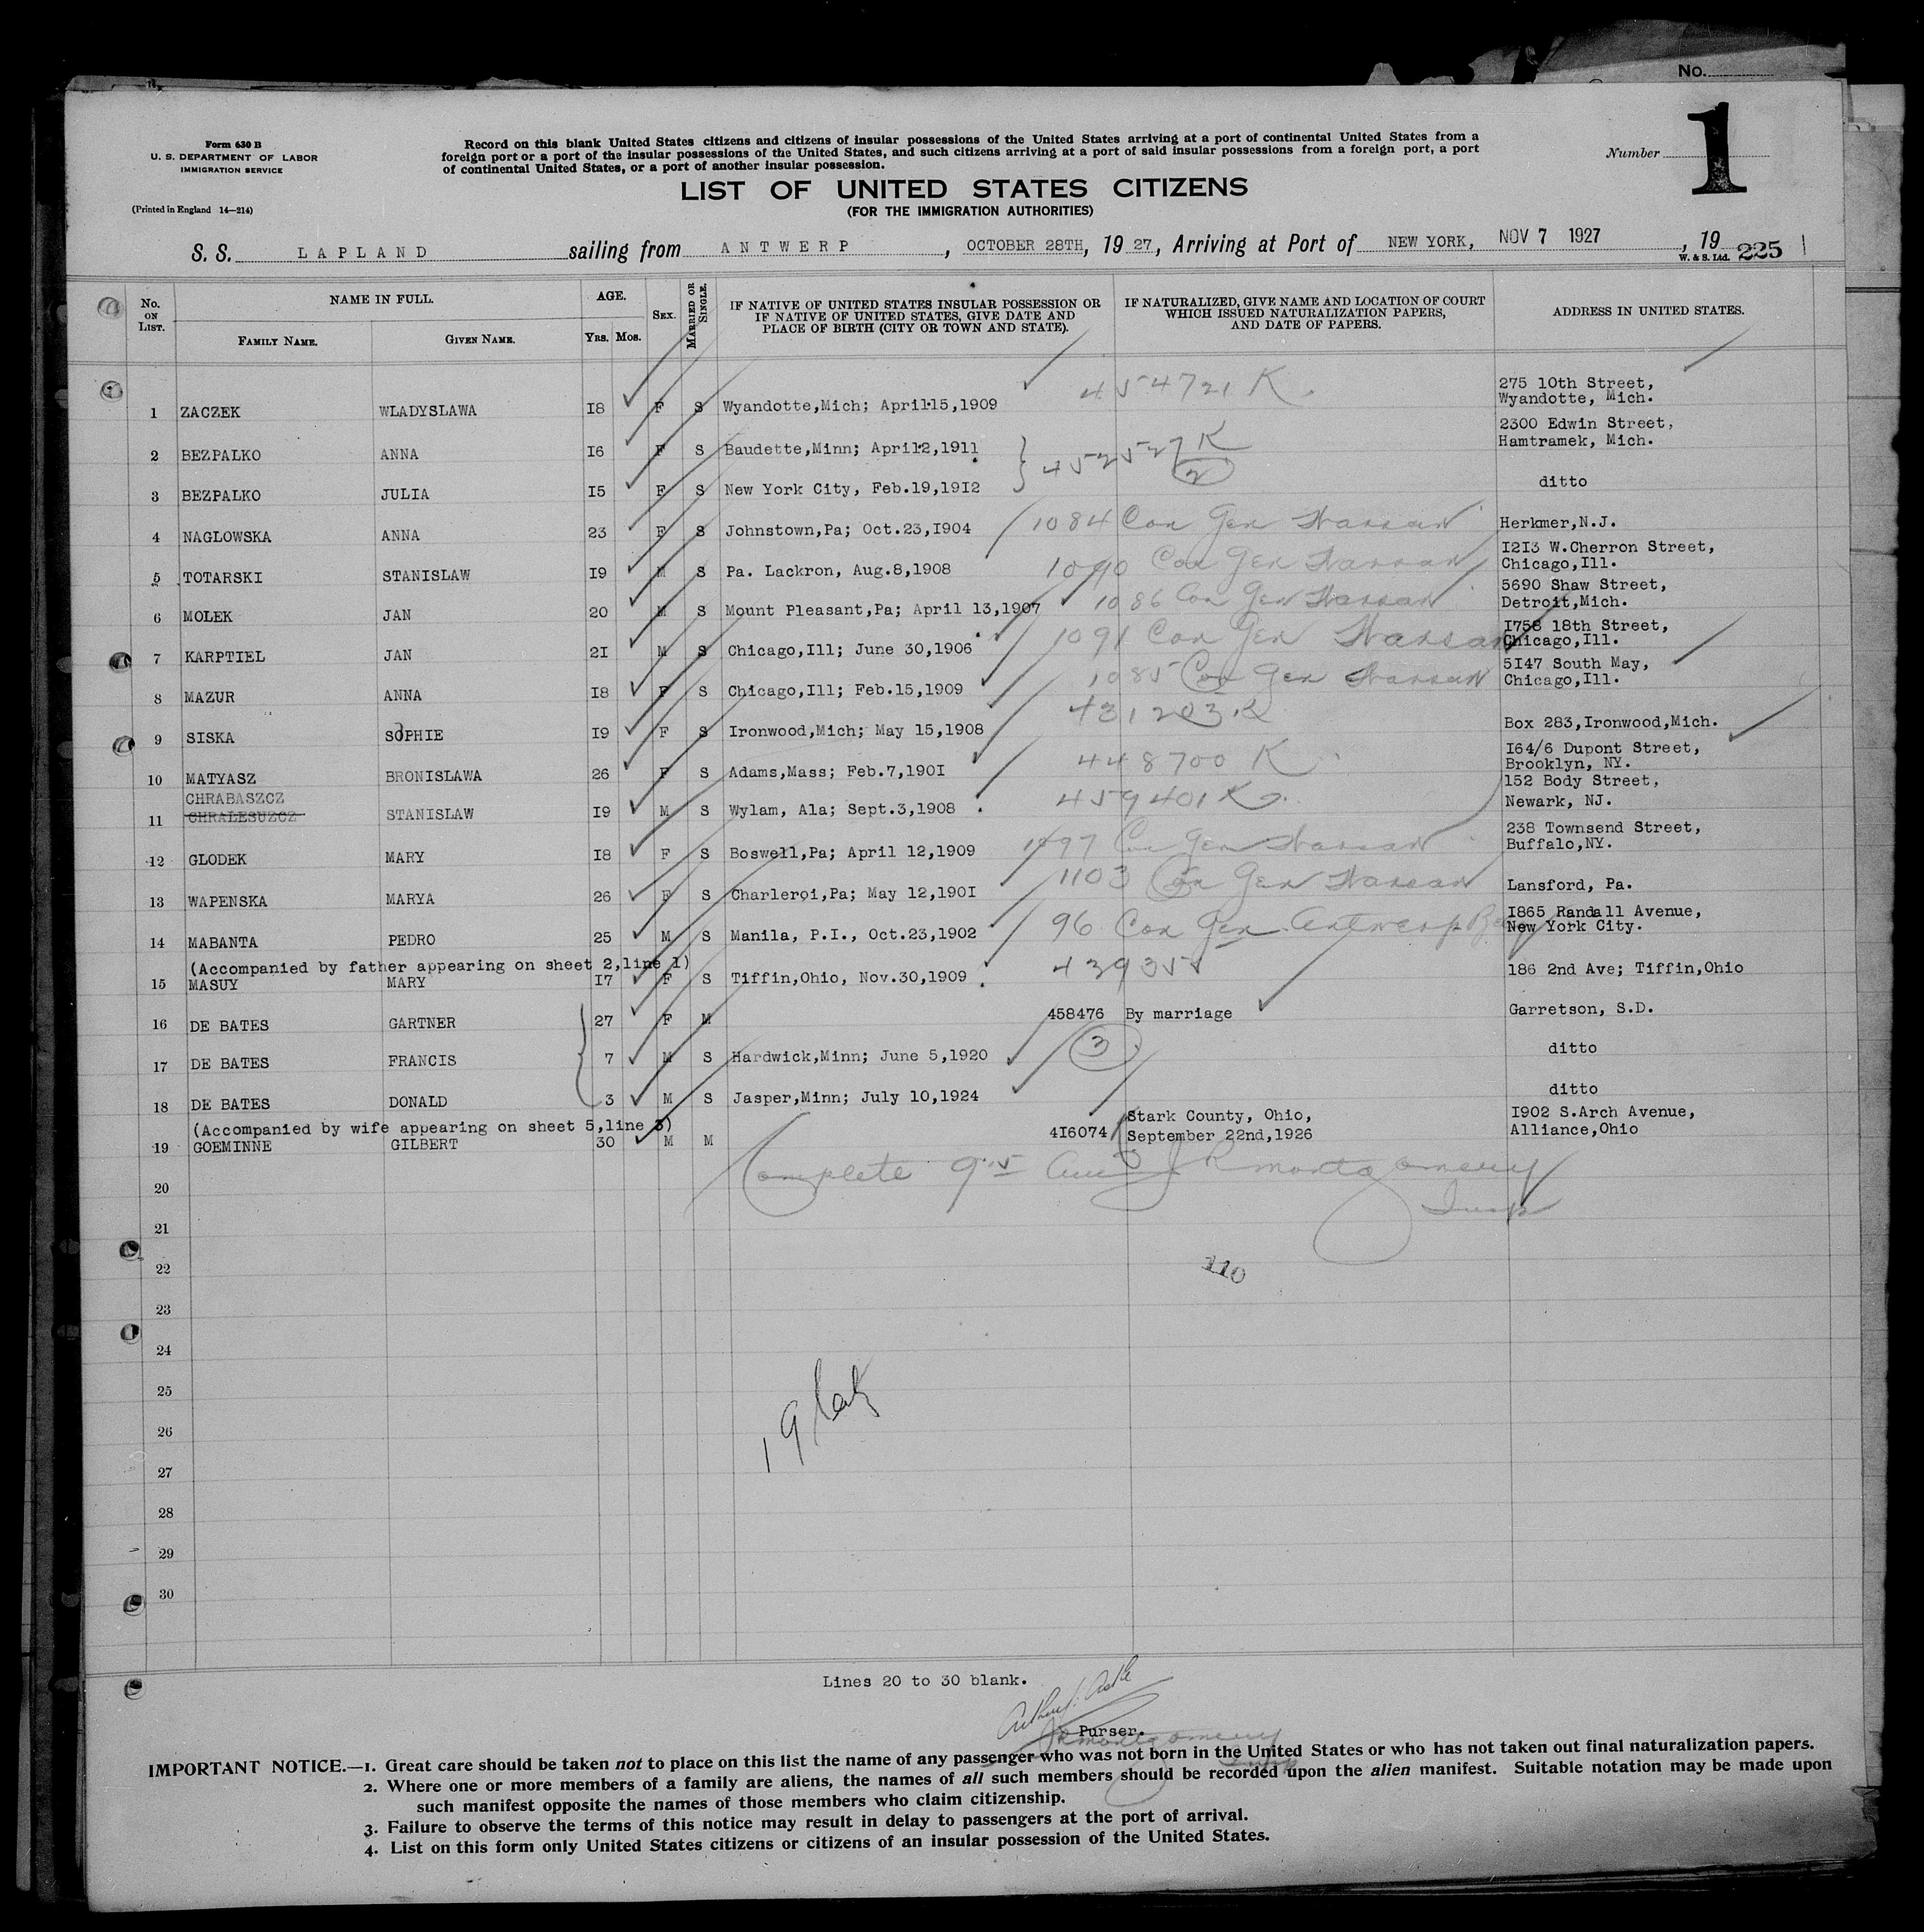 No.
Form 630 B
U. S. DEPARTMENT OF LABOR
IMMIGRATION SERVICE
(Printed in England 14—214)
Record on this blank United States citizens and citizens of insular possessions of the United States arriving at a port of continental United States from a
foreign port or a port of the insular possessions of the United States, and such citizens arriving at a port of said insular possessions from a foreign port, a port
of continental United States, or a port of another insular possession.
Number 1
LIST OF UNITED STATES CITIZENS
(FOR THE IMMIGRATION AUTHORITIES)
S. S. LAPLAND sailing from ANTWERP, OCTOBER 28TH, 1927, Arriving at Port of NEW YORK, NOV 7 1927, 19
W. & S. Ltd. 225
No. ON LIST. NAME IN FULL. FAMILY NAME. GIVEN NAME. AGE. YRS. MOS. SEX. MARRIED OR SINGLE. IF NATIVE OF UNITED STATES INSULAR POSSESSION OR IF NATIVE OF UNITED STATES, GIVE DATE AND PLACE OF BIRTH (CITY OR TOWN AND STATE). IF NATURALIZED, GIVE NAME AND LOCATION OF COURT WHICH ISSUED NATURALIZATION PAPERS, AND DATE OF PAPERS. ADDRESS IN UNITED STATES.
1 ZACZEK WLADYSLAWA 18 F S Wyandotte,Mich; April 15,1909 454721 K. 275 10th Street, Wyandotte, Mich.
2 BEZPALKO ANNA 16 F S Baudette,Minn; April 2,1911 452527 K 2300 Edwin Street, Hamtramek, Mich.
3 BEZPALKO JULIA 15 F S New York City, Feb.19,1912 2 ditto
4 NAGLOWSKA ANNA 23 F S Johnstown,Pa; Oct.23,1904 1084 Con Gen Warsaw Herkmer,N.J.
5 TOTARSKI STANISLAW 19 M S Pa. Lackron, Aug.8,1908 1090 Con Gen Warsaw 1213 W.Cherron Street, Chicago,Ill.
6 MOLEK JAN 20 M S Mount Pleasant,Pa; April 13,1907 1086 Con Gen Warsaw 5690 Shaw Street, Detroit,Mich.
7 KARPTIEL JAN 21 M S Chicago,Ill; June 30,1906 1091 Con Gen Warsaw 1758 18th Street, Chicago,Ill.
8 MAZUR ANNA 18 F S Chicago,Ill; Feb.15,1909 1085 Con Gen Warsaw 5147 South May, Chicago,Ill.
9 SISKA SOPHIE 19 F S Ironwood,Mich; May 15,1908 431203 K Box 283,Ironwood,Mich.
10 MATYASZ BRONISLAWA 26 F S Adams,Mass; Feb.7,1901 448700 K 164/6 Dupont Street, Brooklyn, NY.
CHRABASZCZ
11 CHRALESUZCZ STANISLAW 19 M S Wylam, Ala; Sept.3,1908 459401 K 152 Body Street, Newark, NJ.
12 GLODEK MARY 18 F S Boswell,Pa; April 12,1909 1097 Con Gen Warsaw 238 Townsend Street, Buffalo,NY.
13 WAPENSKA MARYA 26 F S Charleroi,Pa; May 12,1901 1103 Con Gen Warsaw Lansford, Pa.
14 MABANTA PEDRO 25 M S Manila, P.I., Oct.23,1902 96 Con Gen Antwerp 1865 Randall Avenue, New York City.
(Accompanied by father appearing on sheet 2,line 1)
15 MASUY MARY 17 F S Tiffin,Ohio, Nov.30,1909 439355 186 2nd Ave; Tiffin,Ohio
16 DE BATES GARTNER 27 F M 458476 By marriage Garretson, S.D.
17 DE BATES FRANCIS 7 M S Hardwick,Minn; June 5,1920 3 ditto
18 DE BATES DONALD 3 M S Jasper,Minn; July 10,1924 ditto
(Accompanied by wife appearing on sheet 5,line 3)
19 GOEMINNE GILBERT 30 M M 416074 Stark County, Ohio, September 22nd,1926 1902 S.Arch Avenue, Alliance,Ohio
20 Complete JRMontgomery
21 Insp
22 110
23
24
25
26
27
28
29
30
Lines 20 to 30 blank.
Purser.
JRMontgomery
Insp
IMPORTANT NOTICE.—1. Great care should be taken not to place on this list the name of any passenger who was not born in the United States or who has not taken out final naturalization papers.
2. Where one or more members of a family are aliens, the names of all such members should be recorded upon the alien manifest. Suitable notation may be made upon
such manifest opposite the names of those members who claim citizenship.
3. Failure to observe the terms of this notice may result in delay to passengers at the port of arrival.
4. List on this form only United States citizens or citizens of an insular possession of the United States.